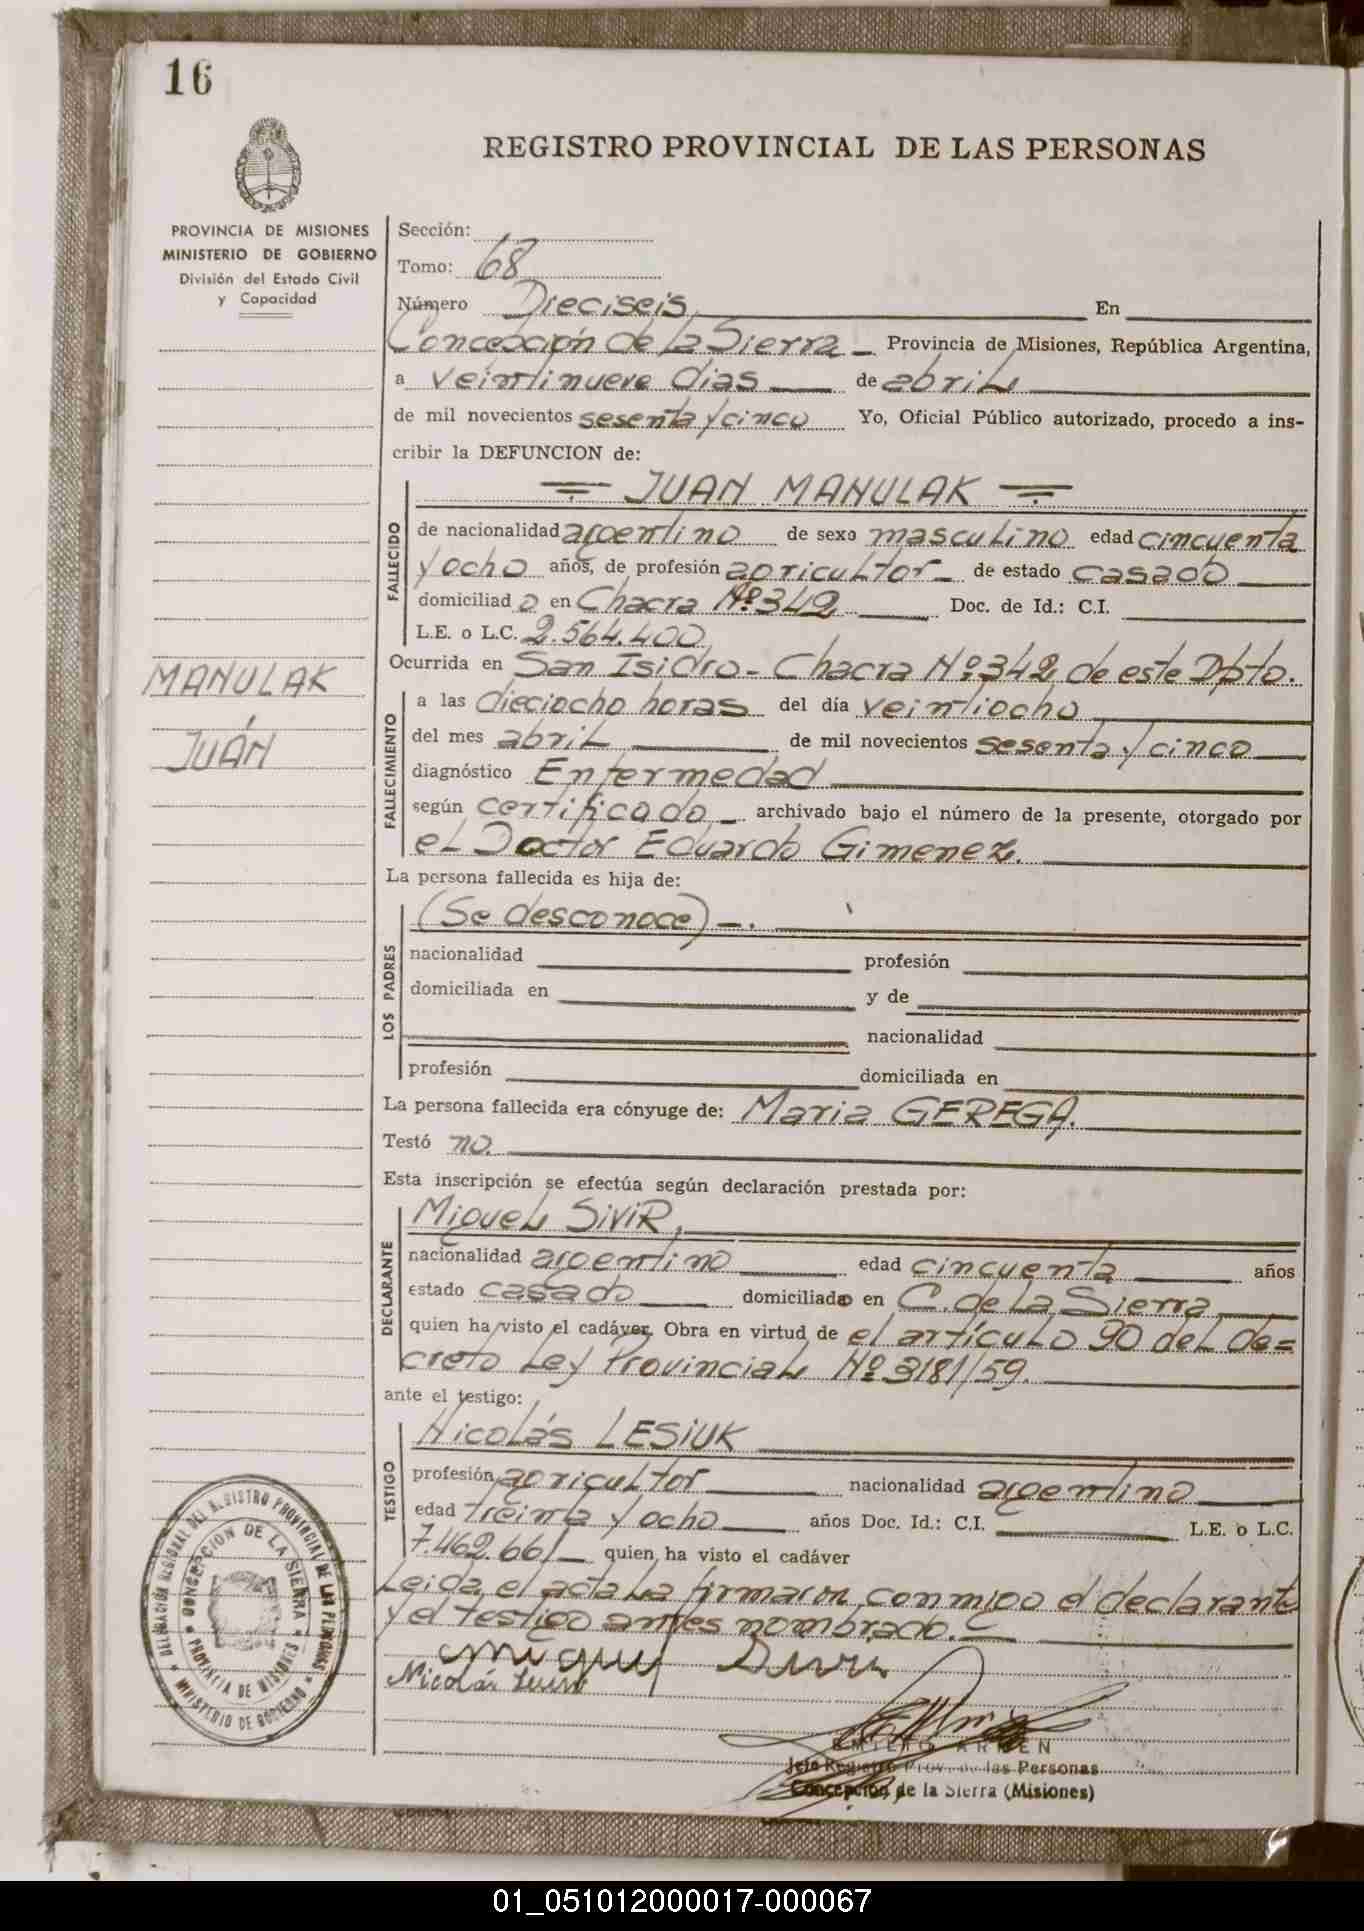 16
REGISTRO PROVINCIAL DE LAS PERSONAS
PROVINCIA DE MISIONES
MINISTERIO DE GOBIERNO
División del Estado Civil
y Capacidad
MANULAK
JUÁN
Sección:
Tomo: 68
Número Dieciseis En
Concepción de la Sierra Provincia de Misiones, República Argentina,
a veintinueve dias de abril
de mil novecientos sesenta y cinco Yo, Oficial Público autorizado, procedo a ins-
cribir la DEFUNCION de:
JUAN MANULAK
FALLECIDO
de nacionalidad argentino de sexo masculino edad cincuenta
y ocho años, de profesión agricultor de estado casado
domiciliado en Chacra Nº 342 Doc. de Id.: C.I.
L.E. o L.C. 2.564.400
Ocurrida en San Isidro - Chacra Nº 342 de este Dpto.
FALLECIMIENTO
a las dieciocho horas del día veintiocho
del mes abril de mil novecientos sesenta y cinco
diagnóstico Enfermedad
según certificado archivado bajo el número de la presente, otorgado por
el Doctor Eduardo Gimenez.
La persona fallecida es hija de:
LOS PADRES
(Se desconoce) -.
nacionalidad profesión
domiciliada en y de
nacionalidad
profesión domiciliada en
La persona fallecida era cónyuge de: Maria GEREGA.
Testó no.
Esta inscripción se efectúa según declaración prestada por:
DECLARANTE
Miguel SIVIR,
nacionalidad argentino edad cincuenta años
estado casado domiciliado en C. de la Sierra
quien ha visto el cadáver. Obra en virtud de el artículo 90 del de=
creto Ley Provincial Nº 3181/59.
ante el testigo:
TESTIGO
Nicolás LESIUK
profesión agricultor nacionalidad argentino
edad treinta y ocho años Doc. Id.: C.I. L.E. o L.C.
7.462.661 quien ha visto el cadáver
Leida el acta la firmaron conmigo el declarante
y el testigo antes nombrado.
Miguel
Nicolás
EMILIO
Jefe Registro Prov. de las Personas
Concepción de la Sierra (Misiones)
DELEGACIÓN REGIONAL DEL REGISTRO PROVINCIAL DE LAS PERSONAS
MINISTERIO DE GOBIERNO
CONCEPCION DE LA SIERRA
PROVINCIA DE MISIONES
01_051012000017-000067